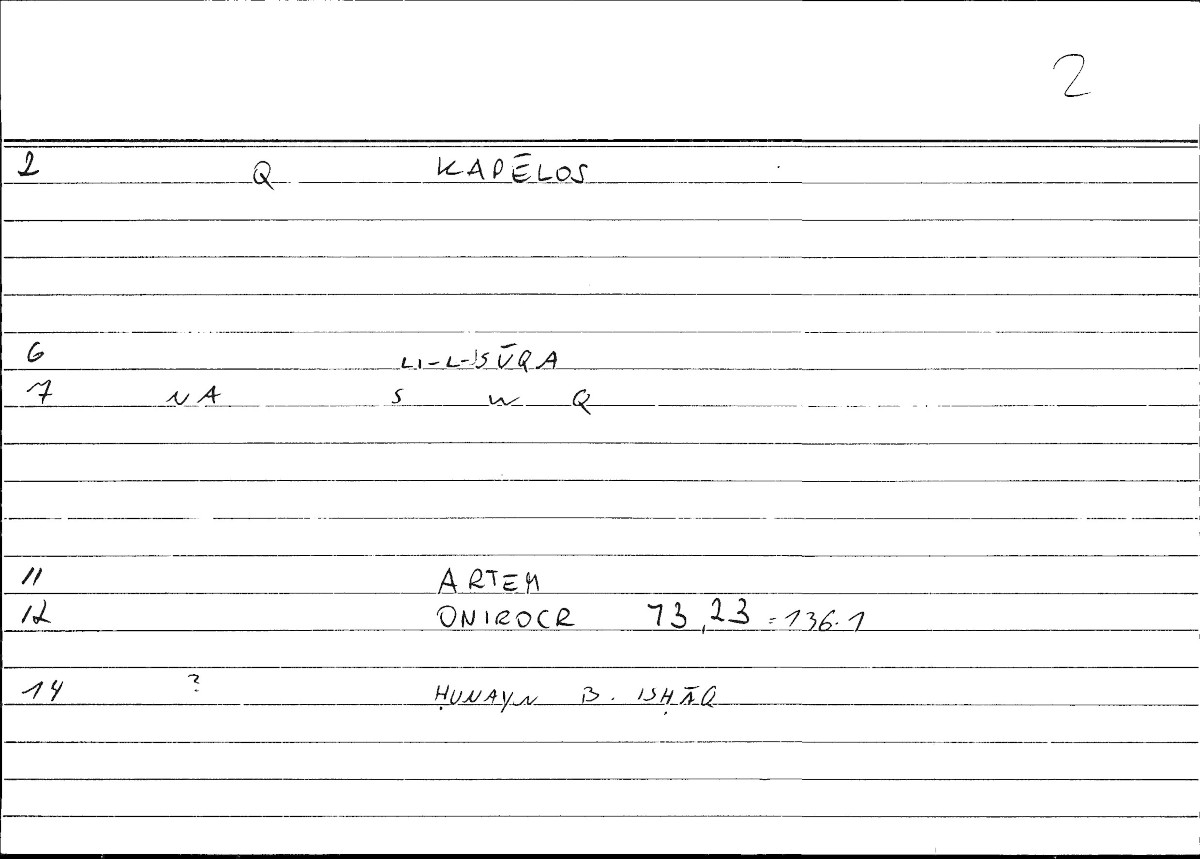 2
2 Q KAPĒLOS
6 LI-L-SŪQA
7 NA S W Q
11 ARTEM
12 ONIROCR 73,23 = 136.1
14 ? ḤUNAYN B. ISḤĀQ